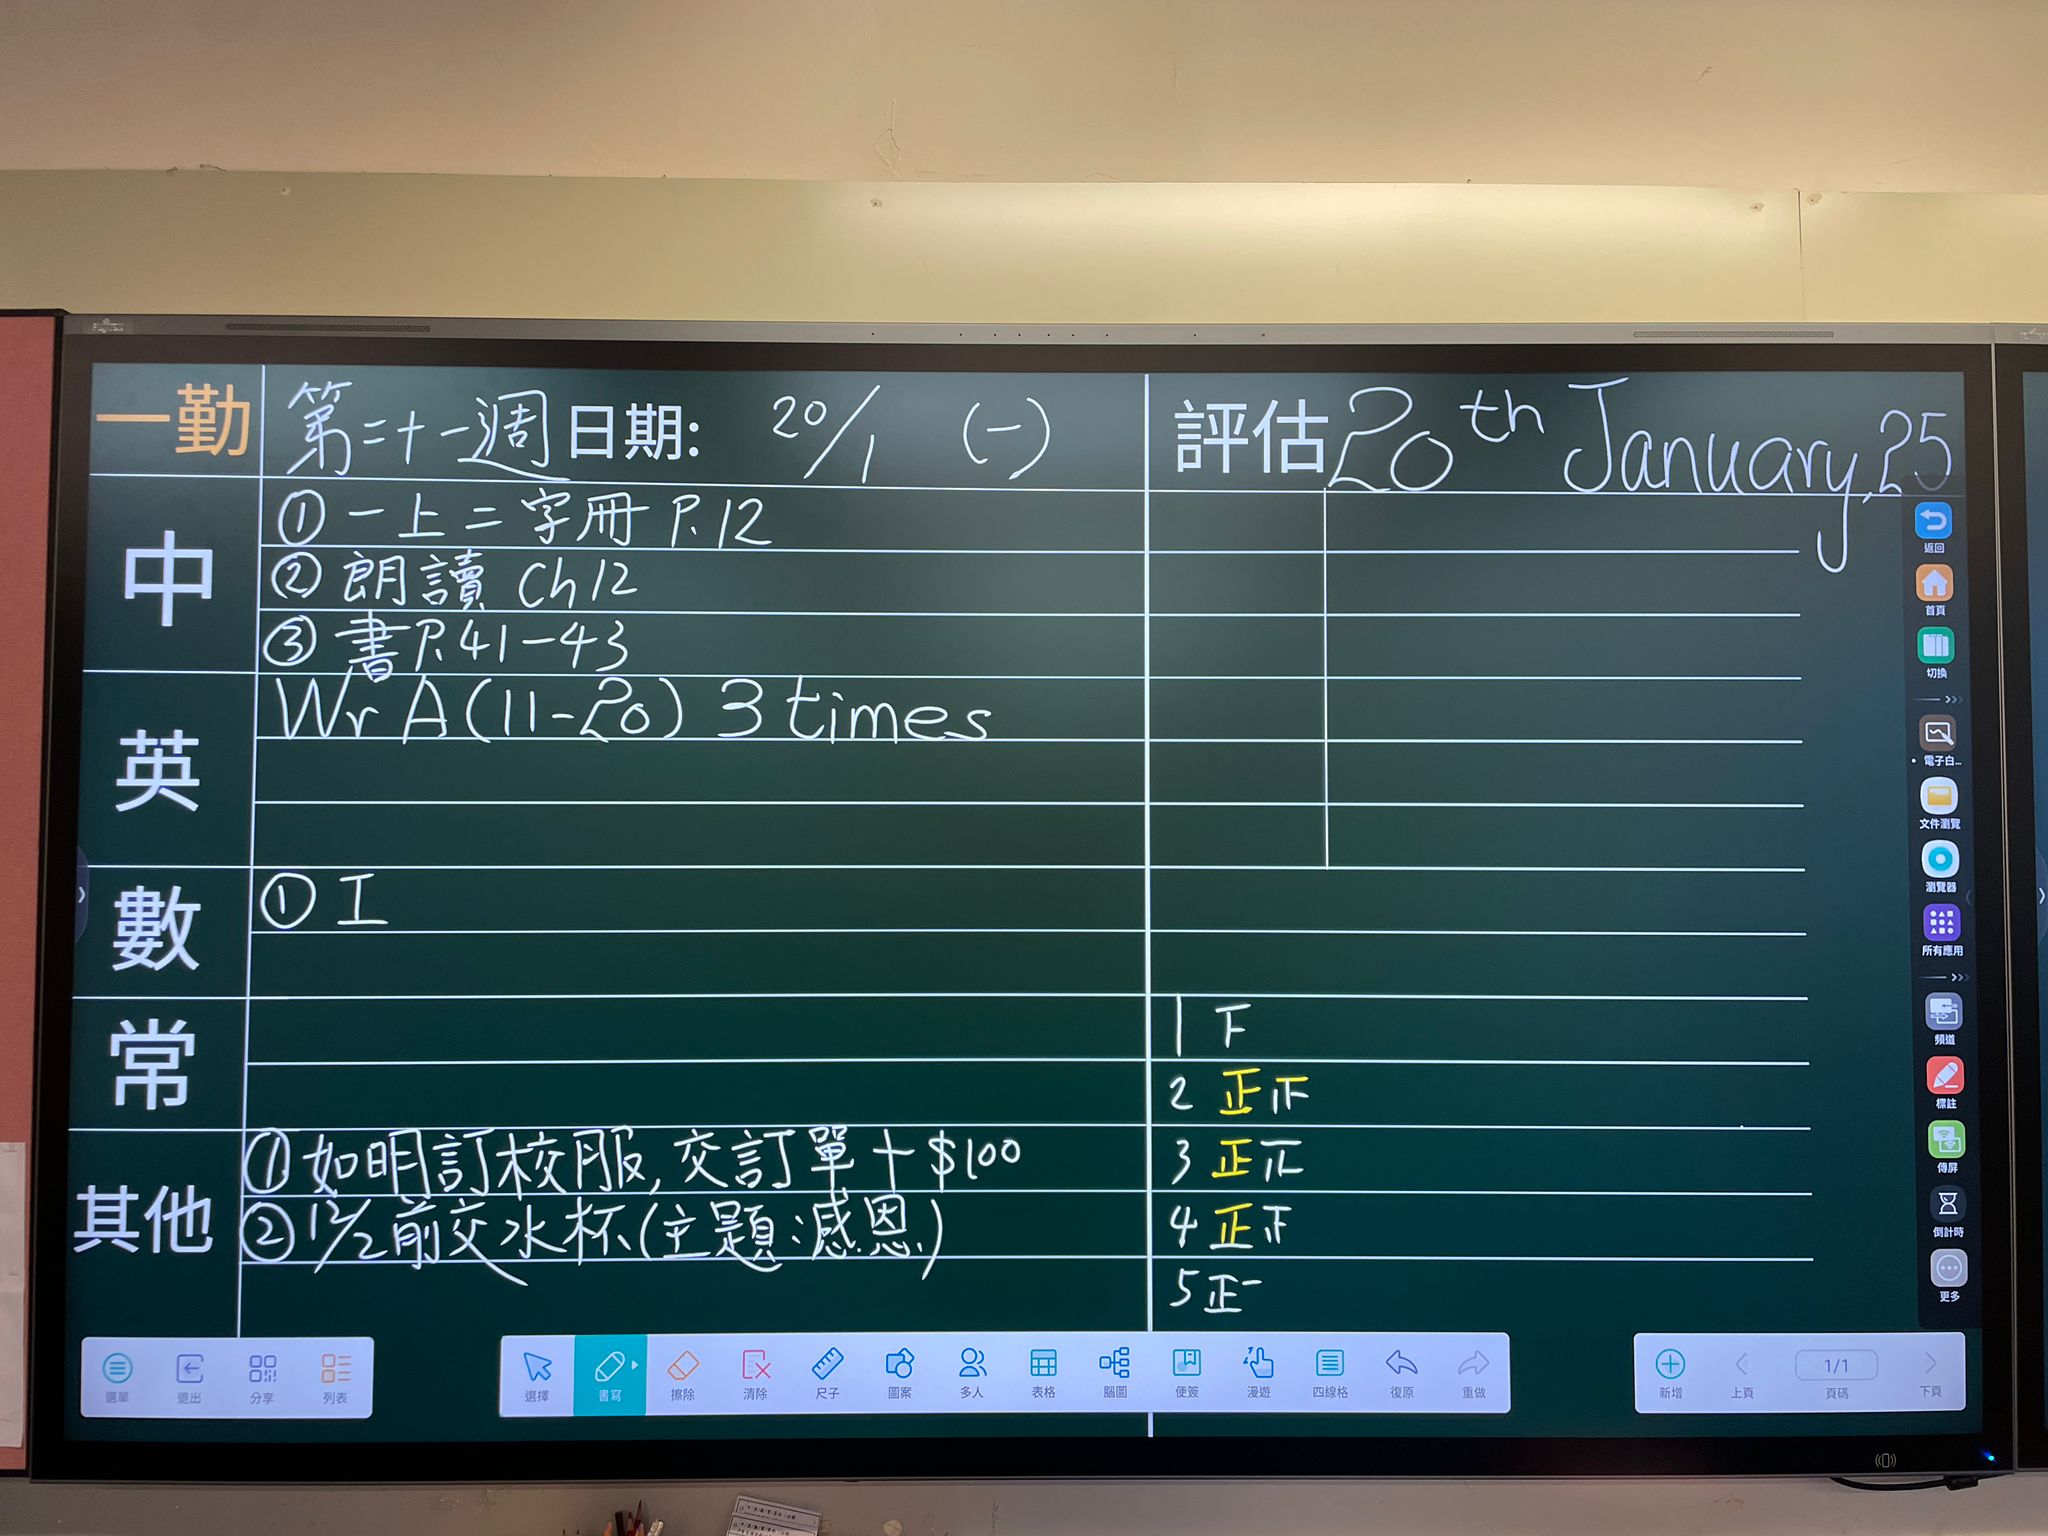 一勤 第二十一週 日期: 20/1 (一)
評估 20th January, 25
中
① 一上二字冊 P.12
② 朗讀 Ch 12
③ 書 P.41-43
英
Wr A (11-20) 3 times
數
① 工
常
其他
① 如明訂校服, 交訂單+$100
② 12/2前交水杯(主題:感恩)
1 下
2 正
3 正
4 正
5 正一
返回
首頁
切換
電子白...
文件瀏覽
瀏覽器
所有應用
頻道
標註
傳屏
倒計時
更多
選單 退出 分享 列表
選擇 書寫 擦除 清除 尺子 圖案 多人 表格 腦圖 便簽 漫遊 四線格 復原 重做
新增 上頁 1/1 頁碼 下頁